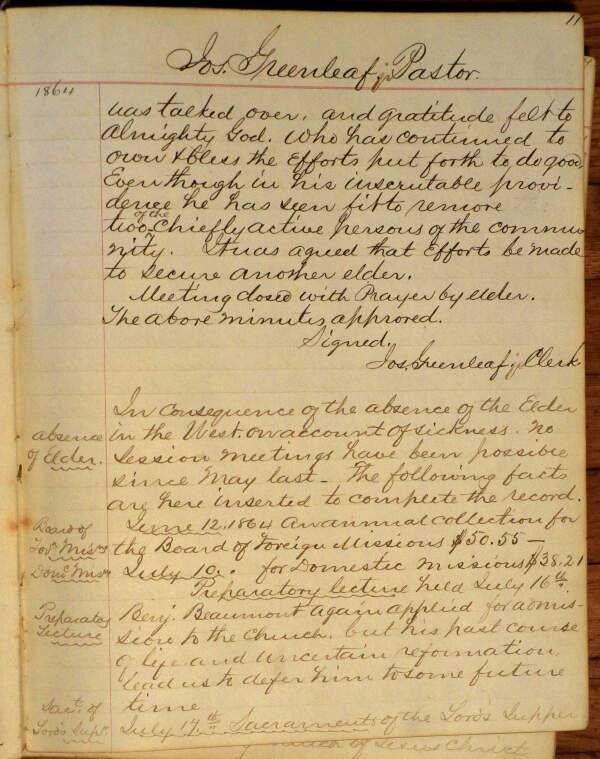 11
Jos. Greenleaf jr Pastor.
1864
was talked over. and gratitude felt to
Almighty God. Who has continued to
own & bless the Efforts put forth to do good,
Even though in his inscrutable provi-
dence he has seen fit to remove
two of the Chiefly active persons of the commu
nity. It was agreed that Efforts be made
to secure another elder.
Meeting closed with Prayer by elder.
The above minutes approved.
Signed.
Jos. Greenleaf jr Clerk
In consequence of the absence of the Elder
absence
in the West. on account of sickness. no
of Elder.
Session meetings have been possible
since May last - The following facts
are here inserted to complete the record.
Board of
June 12, 1864 An annual collection for
For. Miss
the Board of Foreign Missions $50.55 -
Dom. Miss
July 10. for Domestic Missions $38.21
Preparatory lecture held July 16th.
Preparatory
Benj. Beaumont again applied for admis-
Lecture
sion to the Church. but his past course
of life and uncertain reformation.
lead us to defer him to some future
time
Sact. of
July 17th Sacrament of the Lord's Supper
Lord's Supr.
of Jesus Christ